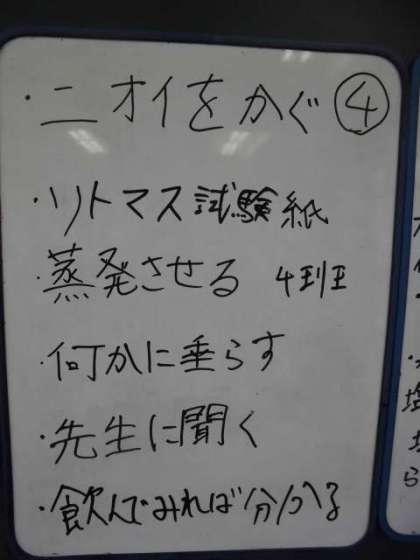 ・ニオイをかぐ ④
・リトマス試験紙
・蒸発させる 4班
・何かに垂らす
・先生に聞く
・飲んでみれば分かる